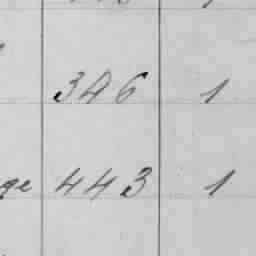 346 1
ge 443 1